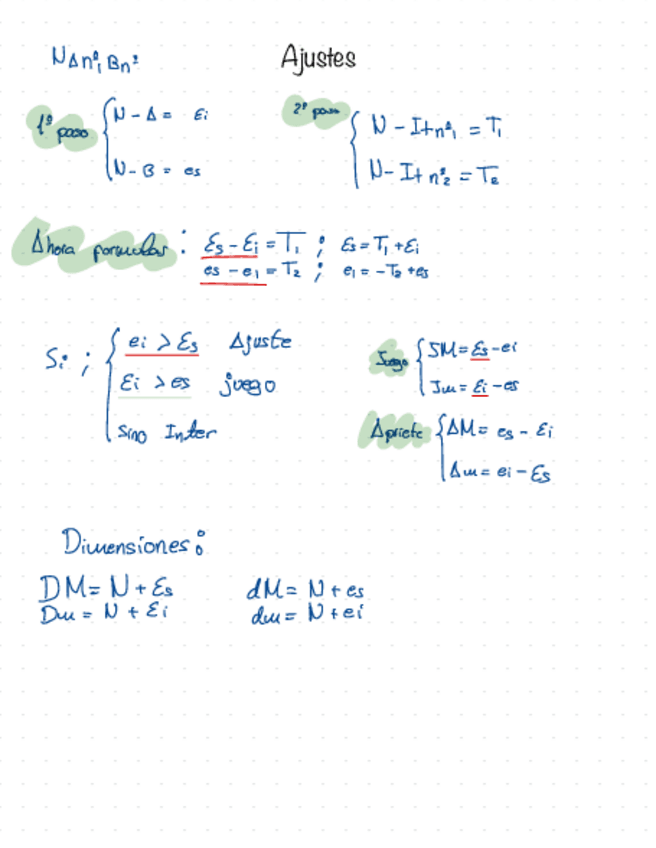 Ajustes
N A n°₁ B n°²
1º paso { N - A = Ei
N - B = es
2º paso { N - It n°₁ = T₁
N - It n°₂ = T₂
Ahora formulas : Es - Ei = T₁ ; Es = T₁ + Ei
es - e₁ = T₂ ; e₁ = -T₂ + es
Si ; { ei > Es Ajuste
Ei > es juego
Sino Inter
Juego { JM = Es - ei
Jm = Ei - es
Apriete { AM = es - Ei
Am = ei - Es
Dimensiones :
DM = N + Es
Dm = N + Ei
dM = N + es
dm = N + ei